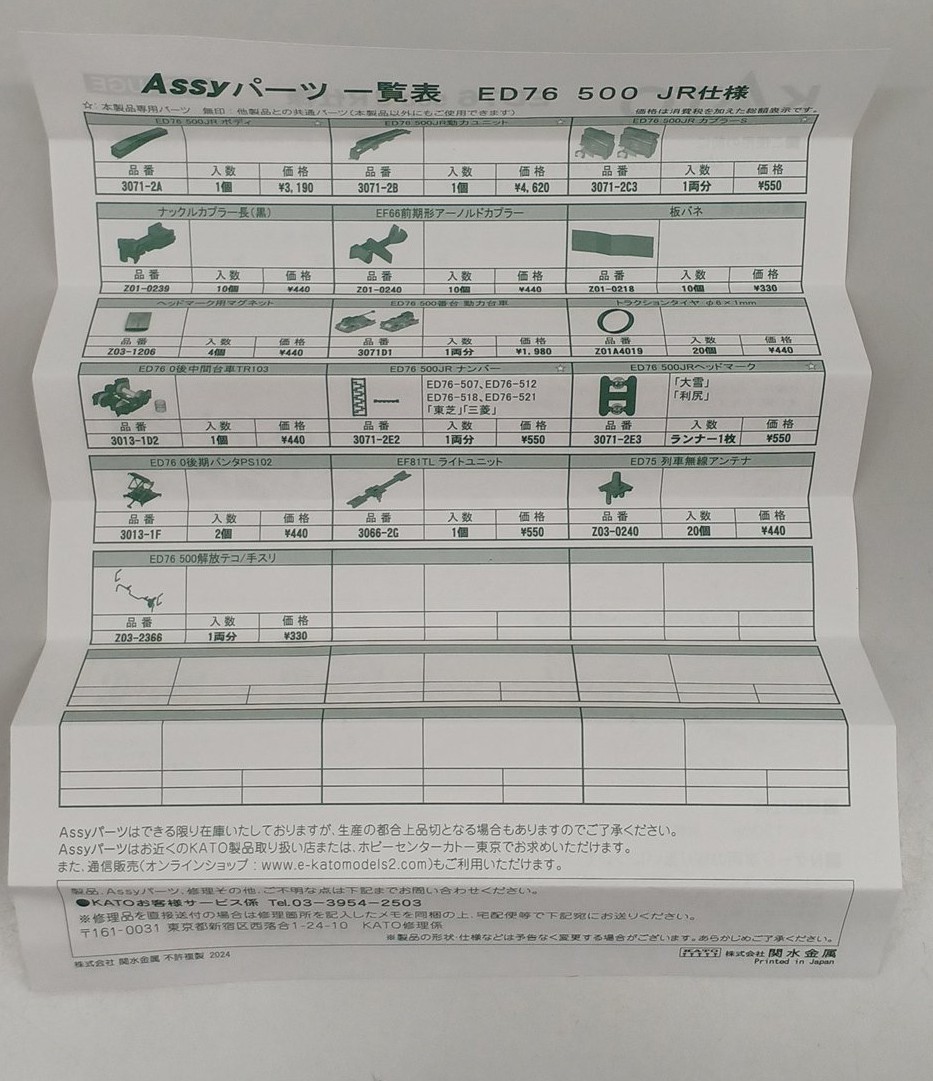 Assyパーツ 一覧表 ED76 500 JR仕様
☆:本製品専用パーツ 無印:他製品との共通パーツ(本製品以外にもご使用できます) 価格は消費税を加えた総額表示です。
ED76 500JR ボディ ☆ ED76 500JR動力ユニット ☆ ED76 500JR カプラーS ☆
品番 入数 価格 品番 入数 価格 品番 入数 価格
3071-2A 1個 ¥3,190 3071-2B 1個 ¥4,620 3071-2C3 1両分 ¥550
ナックルカプラー長(黒) EF66前期形アーノルドカプラー 板バネ
品番 入数 価格 品番 入数 価格 品番 入数 価格
Z01-0239 10個 ¥440 Z01-0240 10個 ¥440 Z01-0218 10個 ¥330
ヘッドマーク用マグネット ED76 500番台 動力台車 トラクションタイヤ φ6×1mm
品番 入数 価格 品番 入数 価格 品番 入数 価格
Z03-1206 4個 ¥440 3071D1 1両分 ¥1,980 Z01A4019 20個 ¥440
ED76 0後中間台車TR103 ED76 500JR ナンバー ☆ ED76 500JRヘッドマーク ☆
ED76-507、ED76-512 「大雪」
ED76-518、ED76-521 「利尻」
「東芝」「三菱」
品番 入数 価格 品番 入数 価格 品番 入数 価格
3013-1D2 1個 ¥440 3071-2E2 1両分 ¥550 3071-2E3 ランナー1枚 ¥550
ED76 0後期パンタPS102 EF81TL ライトユニット ED75 列車無線アンテナ
品番 入数 価格 品番 入数 価格 品番 入数 価格
3013-1F 2個 ¥440 3066-2G 1個 ¥550 Z03-0240 20個 ¥440
ED76 500解放テコ/手スリ
品番 入数 価格
Z03-2366 1両分 ¥330
Assyパーツはできる限り在庫いたしておりますが、生産の都合上品切となる場合もありますのでご了承ください。
Assyパーツはお近くのKATO製品取り扱い店または、ホビーセンターカトー東京でお求めいただけます。
また、通信販売(オンラインショップ:www.e-katomodels2.com)もご利用いただけます。
製品、Assyパーツ、修理その他、ご不明な点は下記までお問い合わせください。
●KATOお客様サービス係 Tel.03-3954-2503
※修理品を直接送付の場合は修理箇所を記入したメモを同梱の上、宅配便等で下記宛にお送りください。
〒161-0031 東京都新宿区西落合1-24-10 KATO修理係
※製品の形状・仕様などは予告なく変更する場合がございます。あらかじめご了承ください。
株式会社 関水金属 不許複製 2024 KATO 株式会社 関水金属
Printed in Japan